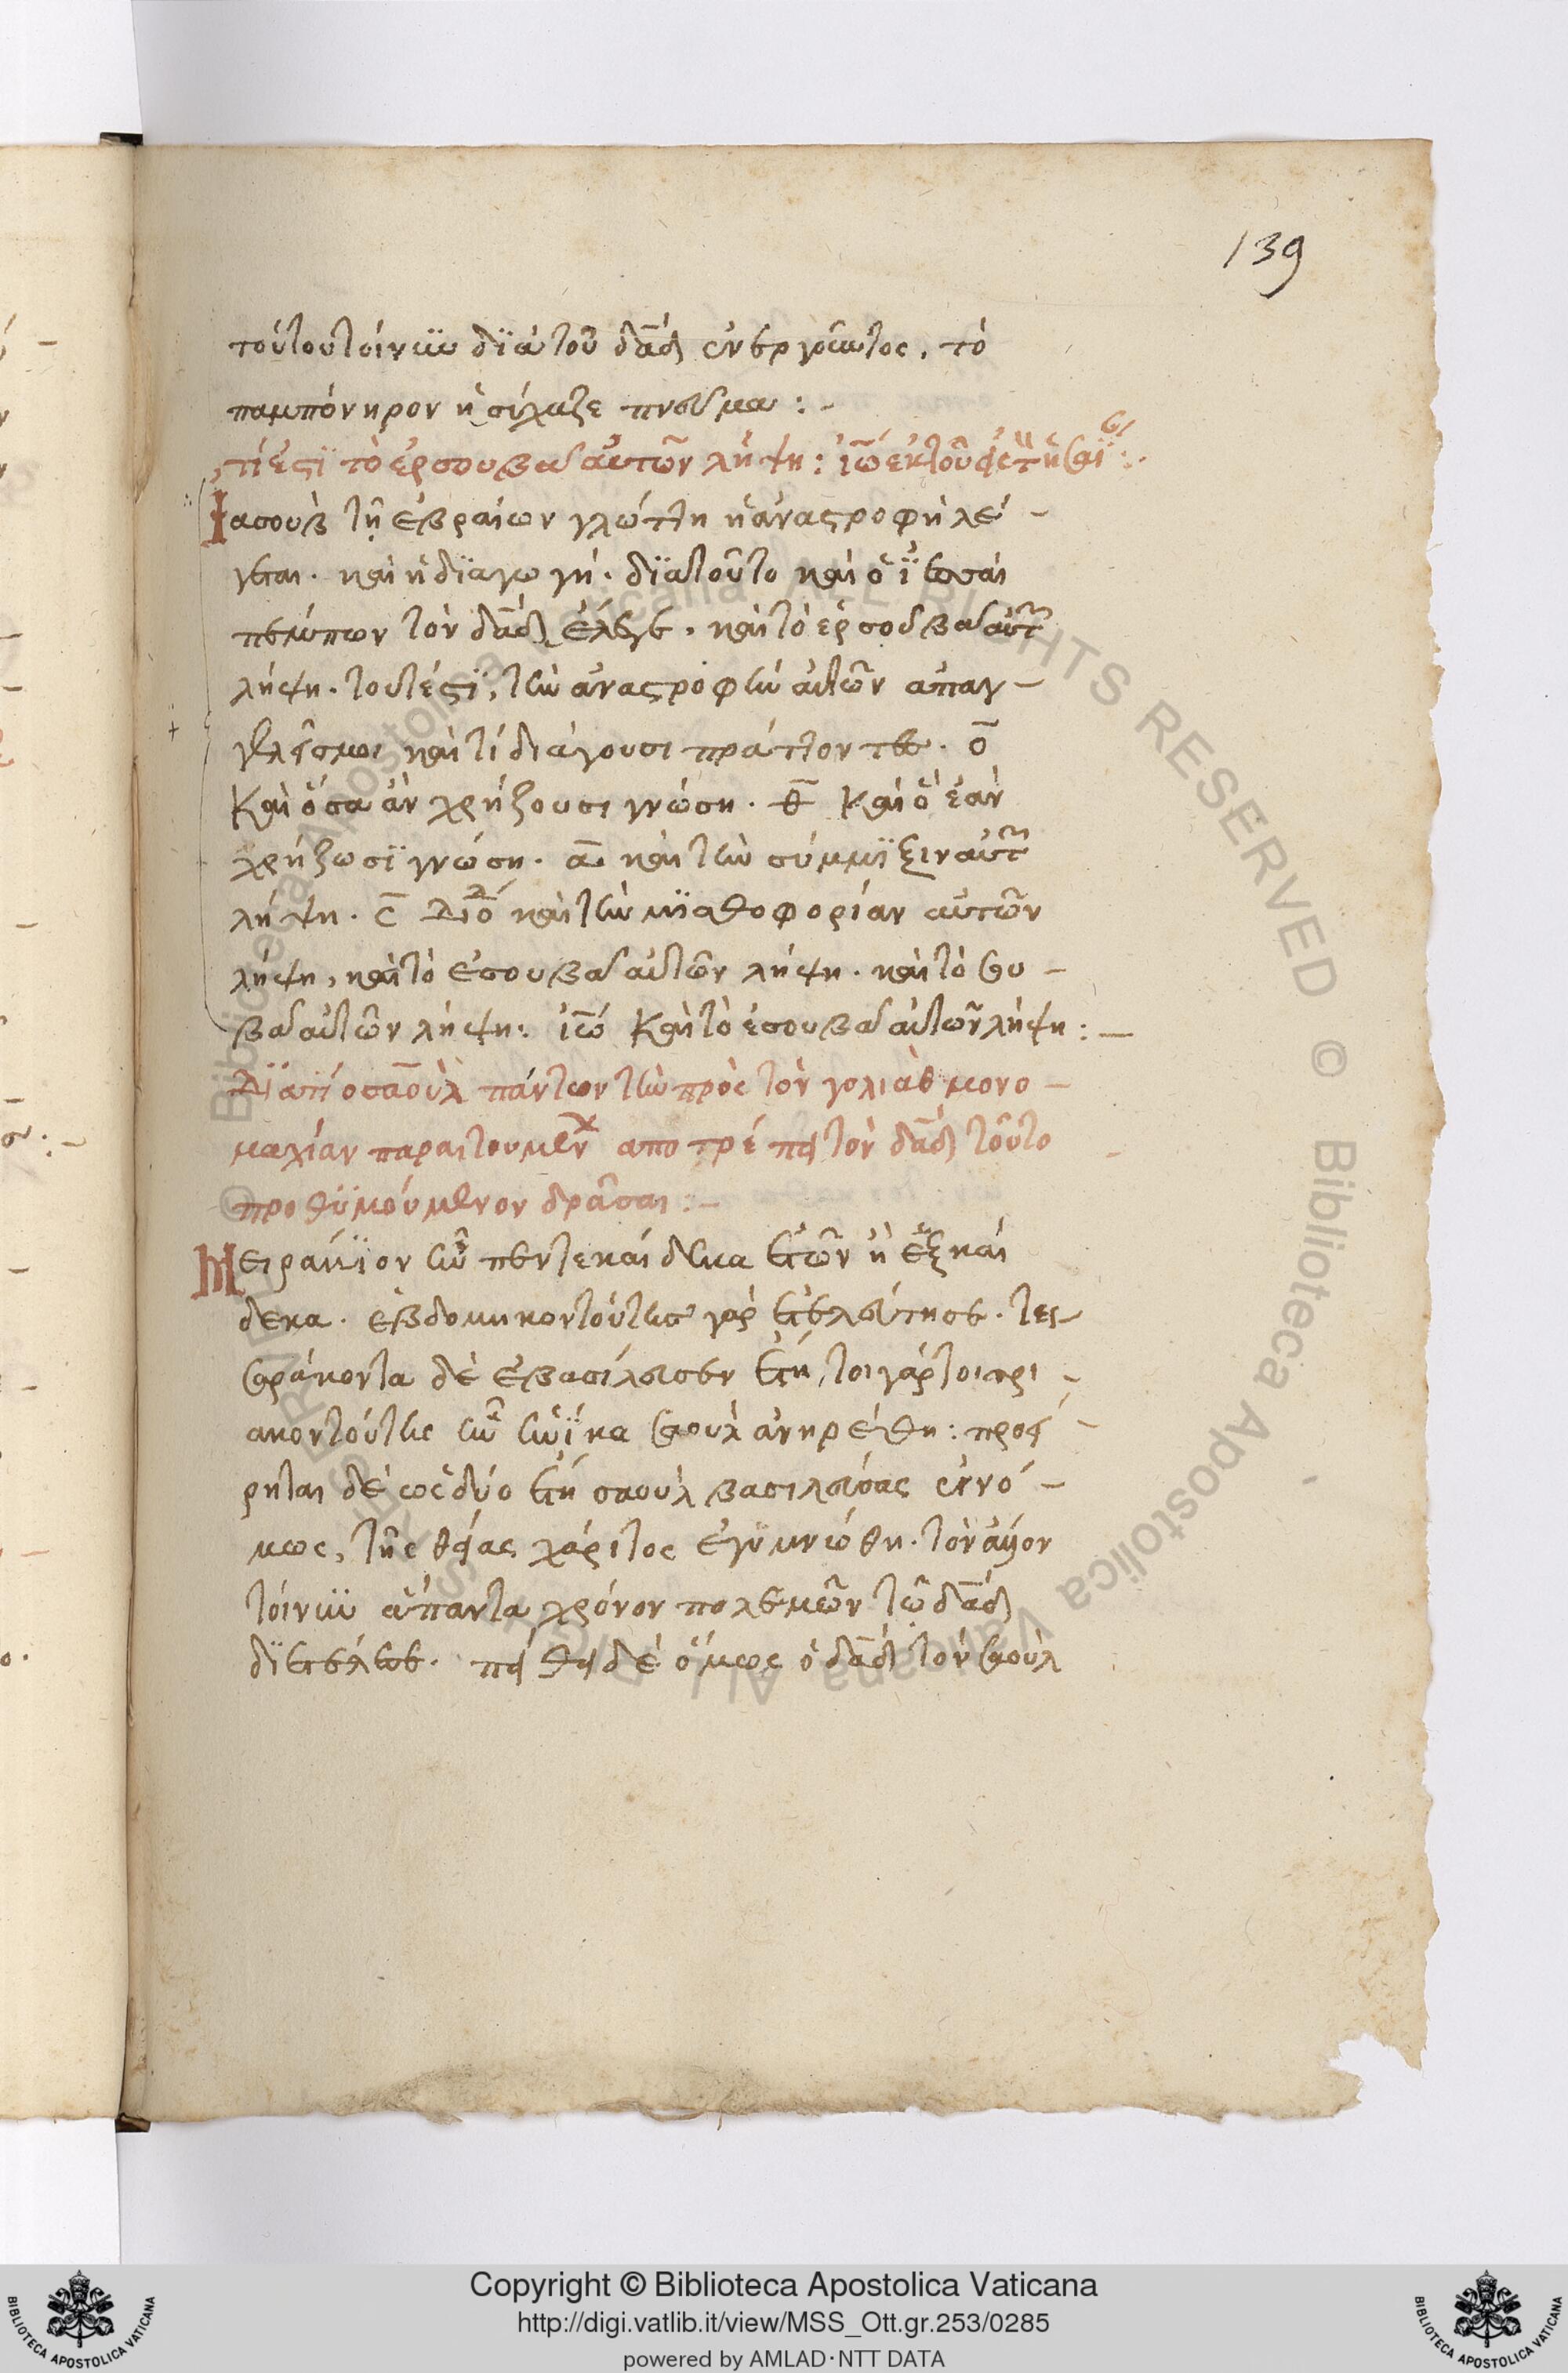 139
τούτου τοίνυν διὰ τοῦ δᾱδ ἐνεργοῦντος, τὸ
παμπόνηρον ἡσύχαζε πνεῦμα :-
τί ἐστὶ τὸ ἐρσουβὰ αὐτῶν λήψη :
Ἰασοὺβ τῇ ἑβραίων γλώττῃ ἡ ἀναστροφὴ λέ-
γεται. καὶ ἡ διαγωγή. διατοῦτο καὶ ὁ ἰεσσαὶ
πέμπων τὸν δᾱδ ἔλεγε. καὶ τὸ ἐρσουβὰ αὐτ
λήψη. τουτέστι, τὴν ἀναστροφὴν αὐτῶν ἀπαγ-
γελεῖς μοι καὶ τί διάγουσι πράττοντες. ο̄
Καὶ ὅσα ἂν χρήζουσι γνώση. θ̄ Καὶ ὃ ἐὰν
χρήζωσι γνώση. ᾱ καὶ τὴν σύμμιξιν αὐτ
λήψη. ς̄ καὶ τὴν μισθοφορίαν αὐτῶν
λήψη, καὶ τὸ ἐσουβὰ αὐτῶν λήψη. καὶ τὸ σου-
βὰ αὐτῶν λήψη: ἰω̄ Καὶ τὸ ἐσουβὰ αὐτῶν λήψη :-
Διατί ὁ σαοὺλ πάντων τὴν πρὸς τὸν γολιὰθ μονο-
μαχίαν παραιτουμέν ἀποτρέπει τὸν δᾱδ τοῦτο
προθυμούμενον δρᾶσαι :-
Μειράκιον ἦν πεντεκαίδεκα ἐτῶν ἢ ἑξκαί
δεκα. ἑβδομηκοντούτης γὰρ ἐτελεύτησε. τεσ-
σαράκοντα δὲ ἐβασίλευσεν ἔτη, τοιγάρτοι τρι-
ακοντούτης ἦν ἡνίκα σαοὺλ ἀνηρέθη : προεί-
ρηται δὲ ὡς δύο ἔτη σαοὺλ βασιλεύσας ἐννό-
μως, τῆς θείας χάριτος ἐγυμνώθη. τὸν ἄλλον
τοίνυν ἅπαντα χρόνον πολεμῶν τῷ δᾱδ
διετέλεσε. πείθει δὲ ὅμως ὁ δᾱδ τὸν σαοὺλ
Copyright © Biblioteca Apostolica Vaticana
http://digi.vatlib.it/view/MSS_Ott.gr.253/0285
powered by AMLAD·NTT DATA